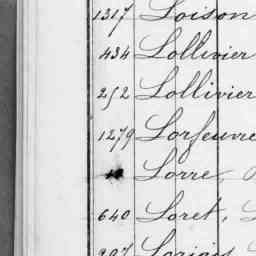 1317 Loison
434 Lollivier
252 Lollivier
1279 Lorfeuvre
Lorre,
640 Loret,
907 Loriois